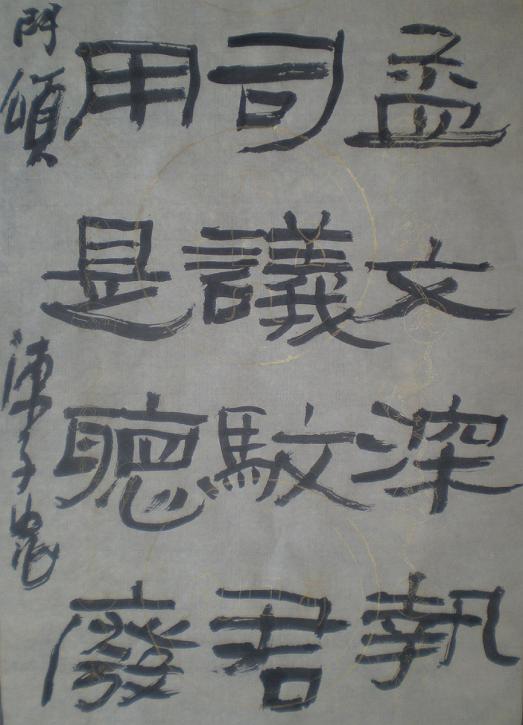 孟文深執
司議駮君
用是聽廢
門頌 陳子